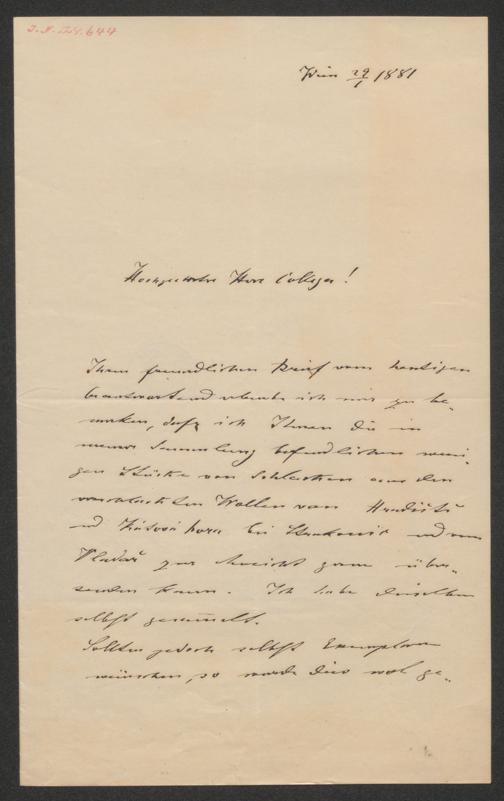 I.N. 124.644
Wien 29/1 1881
Hochgeehrter Herr College!
Ihren freundlichen Brief vom heutigen
beantwortend erlaube ich mir zu be-
merken, daß ich Ihnen die in
meiner Sammlung befindlichen weni-
gen Stücke von Schlacken aus den
verschlackten Wällen von Hradiště
und Katovic hora bei Strakonic und von
Vladař zur Ansicht gerne über-
senden kann. Ich habe dieselben
selbst gesammelt.
Sollten jedoch selbst Exemplare
wünschen, so würde dies wol ge-